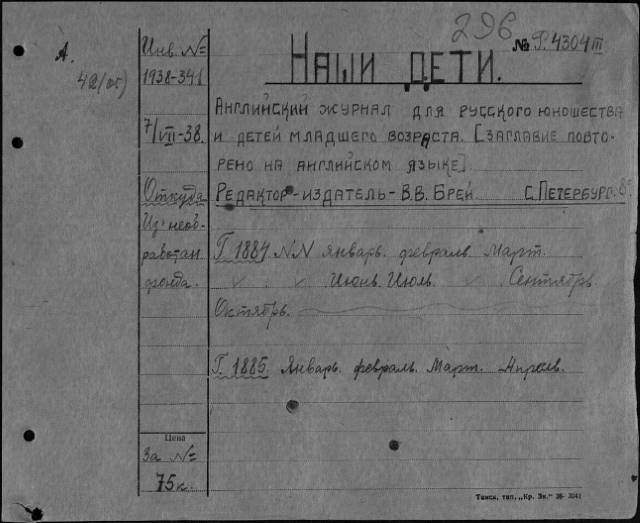 296
№ Р. 4304 III
А.
42(05)
Инв. №
1938-341
7/VII-38.
Откуда
Из необ-
работан.
фонда.
Цена
За №
75 к.
НАШИ ДЕТИ.
АНГЛИЙСКИЙ ЖУРНАЛ ДЛЯ РУССКОГО ЮНОШЕСТВА
И ДЕТЕЙ МЛАДШЕГО ВОЗРАСТА. [ЗАГЛАВИЕ ПОВТО-
РЕНО НА АНГЛИЙСКОМ ЯЗЫКЕ].
РЕДАКТОР-ИЗДАТЕЛЬ - В.В. БРЕЙ С. ПЕТЕРБУРГ. 8°
Г. 1884 NN январь. февраль. Март.
Июнь. Июль. Сентябрь
Октябрь.
Г. 1885 Январь. февраль. Март. Апрель.
Томск, тип. „Кр. Зн."